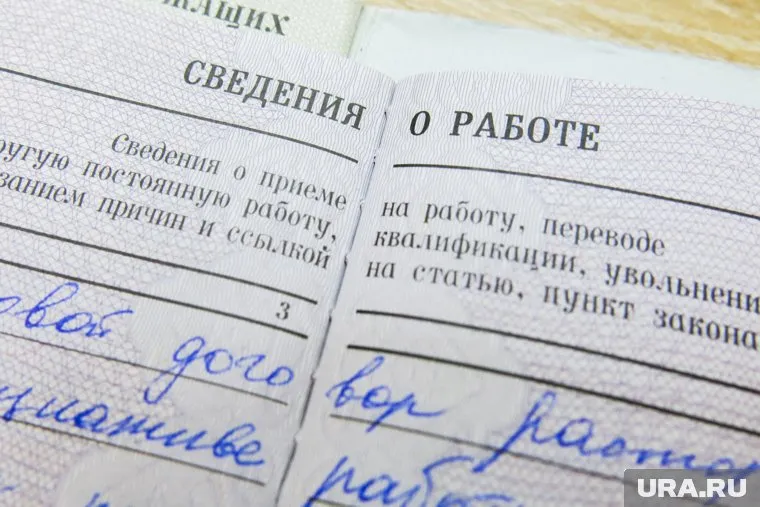 ЖАЩИХ
СВЕДЕНИЯ О РАБОТЕ
Сведения о приеме на работу, переводе
ругую постоянную работу, квалификации, увольнени
занием причин и ссылкой на статью, пункт закона
3
овой дого вор растор
циативе рабо
URA.RU